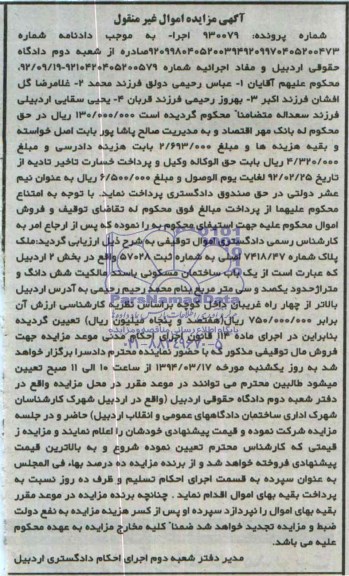 آگهی مزایده اموال غیر منقول
شماره پرونده: ۹۳۰۰۷۹ اجرا- به موجب دادنامه شماره
۹۲۰۹۹۸۰۴۰۵۲۰۰۳۹۴۹۲۰۹۹۷۰۴۰۵۲۰۰۴۷۳صادره از شعبه دوم دادگاه
حقوقی اردبیل و مفاد اجرائیه شماره ۹۲۱۰۴۲۰۴۰۵۲۰۰۵۷۹-۹۲/۰۹/۱۹
محکوم علیهم آقایان ۱- عباس رحیمی دولق فرزند محمد ۲- غلامرضا گل
افشان فرزند اکبر ۳- بهروز رحیمی فرزند قربان ۴- یحیی سقایی اردبیلی
فرزند سعداله متضامنا" محکوم گردیده است ۱۳۰/۰۰۰/۰۰۰ ریال در حق
محکوم له بانک مهر اقتصاد و به مدیریت صالح پاشا پور بابت اصل خواسته
و بقیه هزینه ها و مبلغ ۲/۶۹۳/۰۰۰ بابت هزینه دادرسی و مبلغ
۴/۳۲۰/۰۰۰ ریال بابت حق الوکاله وکیل و پرداخت خسارت تاخیر تادیه از
تاریخ ۹۲/۰۲/۲۵ لغایت یوم الوصول و مبلغ ۶/۵۰۰/۰۰۰ ریال به عنوان نیم
عشر دولتی در حق صندوق دادگستری پرداخت نماید. با توجه به امتناع
محکوم علیهما از پرداخت مبالغ فوق محکوم له تقاضای توقیف و فروش
اموال محکوم علیه جهت استیفای محکوم به را نموده که پس از ارجاع امر به
کارشناس رسمی دادگستری اموال توقیفی به شرح ذیل ارزیابی گردید:ملک
پلاک شماره ۷۴۱۸/۴۷ اصلی به شماره ثبت ۵۷۰۲۸ واقع در بخش ۲ اردبیل
که عبارت است از یک باب ساختمان مسکونی باستناد مالکیت شش دانگ و
متراژحدود یکصد و سی متر مربع بنام محمد رحیم رحیمی به آدرس اردبیل
بالاتر از چهار راه غریبان داخل کوچه براساس نظریه کارشناسی ارزش آن
برابر ۷۵۰/۰۰۰/۰۰۰ ریال(هفتصد و پنجاه میلیون ریال) تعیین گردیده
بنابراین در اجرای ماده ۱۱۴ قانون اجرای احکام مدنی موعد مزایده جهت
فروش مال توقیفی مذکور که با حضور نماینده محترم دادسرا برگزار خواهد
شد به روز یکشنبه مورخه ۱۳۹۴/۰۳/۱۷ از ساعت ۱۰ الی ۱۱ صبح تعیین
میشود طالبین محترم می توانند در موعد مقرر در محل مزایده واقع در
دفتر شعبه دوم دادگاه حقوقی اردبیل (واقع در اردبیل شهرک کارشناسان
شهرک اداری ساختمان دادگاههای عمومی و انقلاب اردبیل) حاضر و در جلسه
مزایده شرکت نموده و قیمت پیشنهادی خودشان را اعلام نمایند و مزایده از
قیمتی که کارشناس محترم تعیین نموده شروع و به بالاترین قیمت
پیشنهادی فروخته خواهد شد و از برنده مزایده ده درصد بهاء فی المجلس
به عنوان سپرده به قسمت اجرای احکام تسلیم و ظرف ده روز نسبت به
پرداخت بقیه بهای اموال اقدام نماید . چنانچه برنده مزایده در موعد مقرر
بقیه بهای اموال را نپردازد سپرده او پس از کسر هزینه مزایده به نفع دولت
ضبط و مزایده تجدید خواهد شد ضمنا" کلیه مخارج مزایده به عهده محکوم
علیه می باشد.
مدیر دفتر شعبه دوم اجرای احکام دادگستری اردبیل